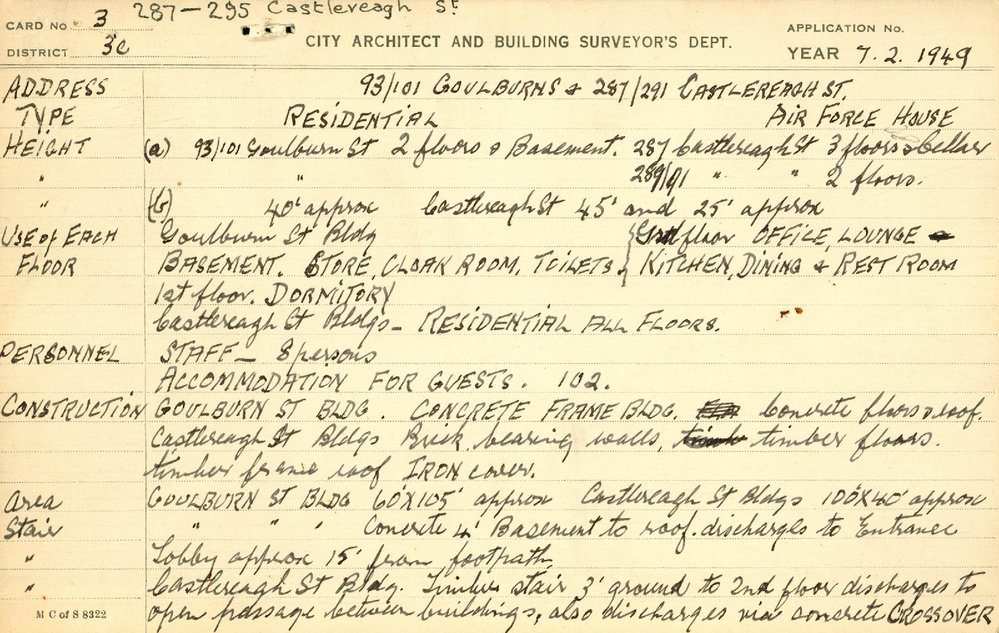 287-295 Castlereagh St
CARD No 3
CITY ARCHITECT AND BUILDING SURVEYOR'S DEPT.
APPLICATION No.
DISTRICT 3c
YEAR 7.2.1949
ADDRESS 93/101 GOULBURNS & 287/291 CASTLEREAGH ST.
TYPE RESIDENTIAL AIR FORCE HOUSE
HEIGHT (a) 93/101 Goulburn St 2 floors & Basement. 287 Castlereagh St 3 floors & Cellar
" " 289/91 " " 2 floors.
" (b) 40' approx Castlereagh St 45' and 25' approx
USE of EACH Goulburn St Bldg { Grd floor OFFICE, LOUNGE
FLOOR BASEMENT. STORE, CLOAK ROOM, TOILETS. KITCHEN, DINING & REST ROOM
1st floor. DORMITORY
Castlereagh St Bldgs - RESIDENTIAL ALL FLOORS.
PERSONNEL STAFF - 8 persons
ACCOMMODATION FOR GUESTS. 102.
CONSTRUCTION GOULBURN ST BLDG. CONCRETE FRAME BLDG. Concrete floors & roof.
Castlereagh St Bldgs Brick bearing walls, timber floors.
timber frame roof IRON cover.
Area GOULBURN ST BLDG 60'X105' approx Castlereagh St Bldgs 100'X40' approx
Stair " " " Concrete 4' Basement to roof. discharges to Entrance
" Lobby approx 15' from footpath
" Castlereagh St Bldg. Timber stair 3' ground to 2nd floor discharges to
M C of S 8322 open passage between buildings, also discharges via concrete CROSSOVER